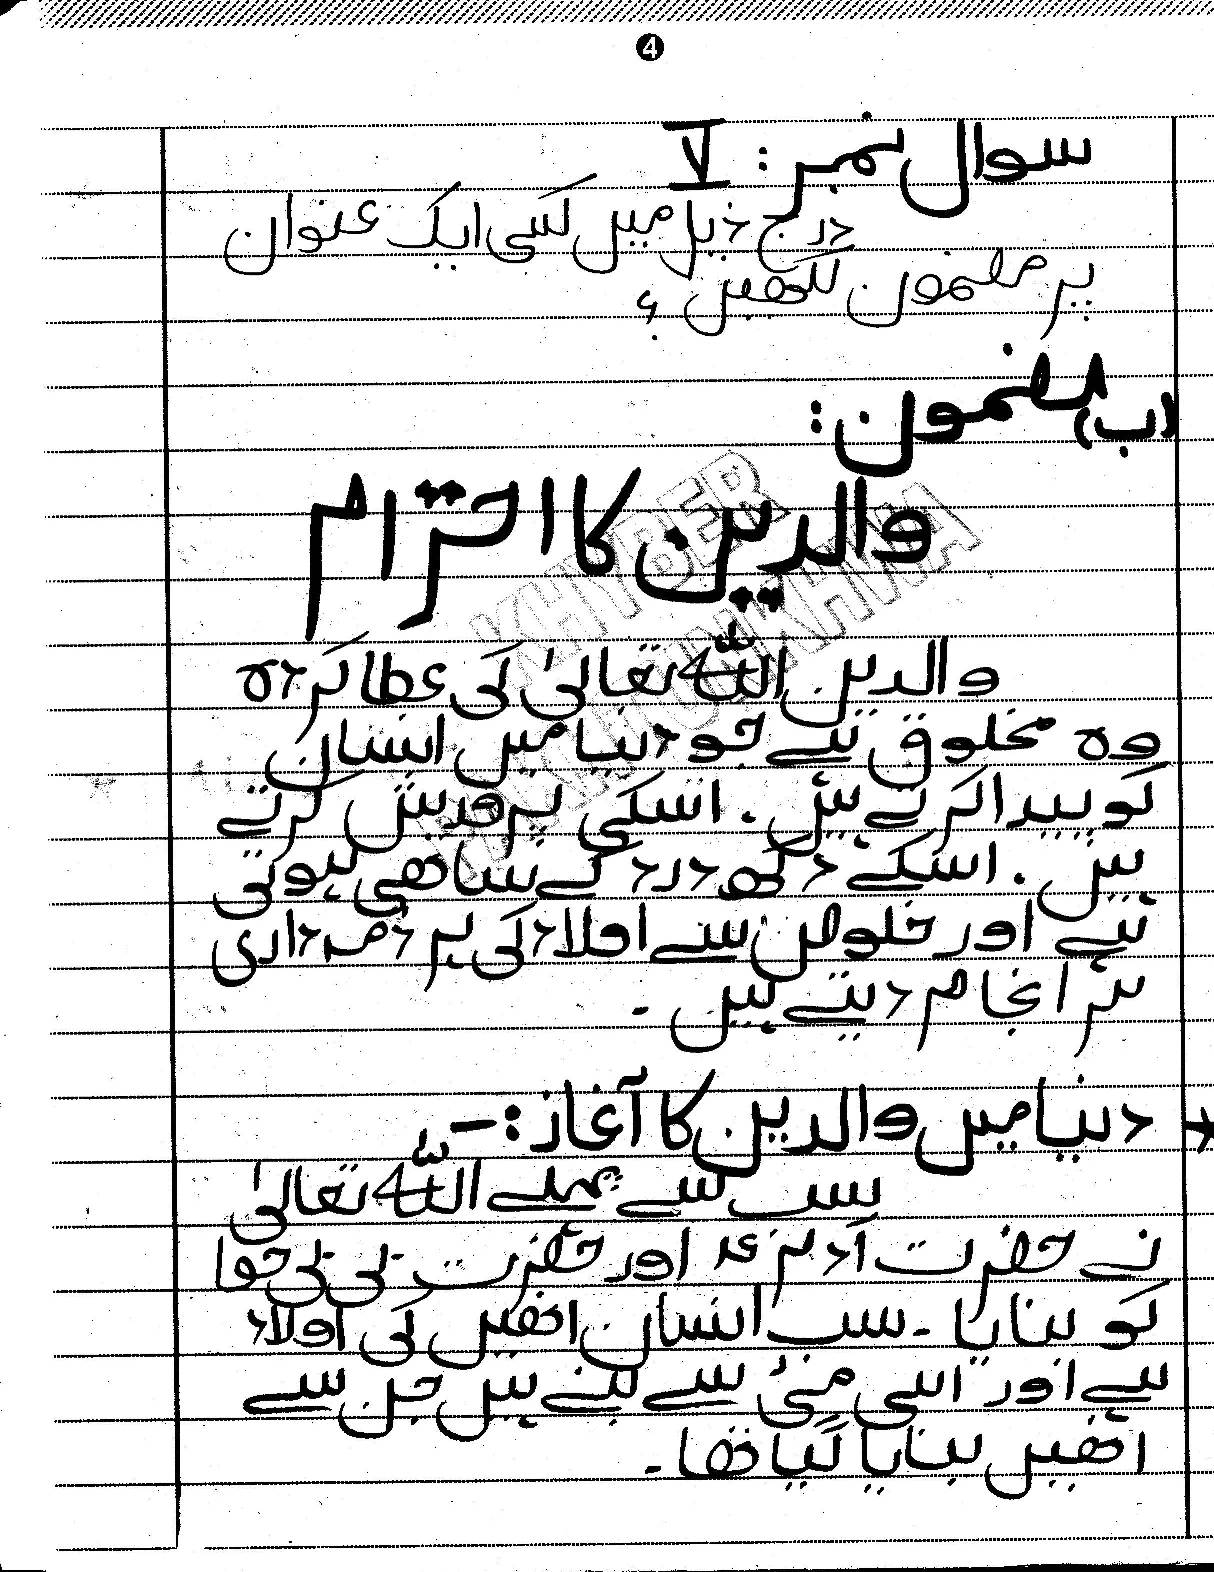 4
سوال نمبر: V
درج ذیل میں کسی ایک عنوان
پر مضمون لکھیں ؟
(ب) مضمون:
والدین کا احترام
KHYBER
PAKHTUNKHWA
والدین اللہ تعالیٰ کی عطا کردہ
وہ مخلوق ہے جو دنیا میں انسان
کو پیدا کرتے ہیں . اسکی پرورش کرتے
ہیں . اسکے دکھ درد کے ساتھی ہوتی
ہے اور خلوص سے اولاد کی ہر ذمہ داری
سر انجام دیتے ہیں -
دنیا میں والدین کا آغاز:-
سب سے پہلے اللہ تعالیٰ
نے حضرت آدم ع اور حضرت بی بی حوا
کو بنایا - سب انسان انھیں کی اولاد
ہے اور اسی مٹی سے بنے ہیں جن سے
انھیں بنایا گیا تھا -